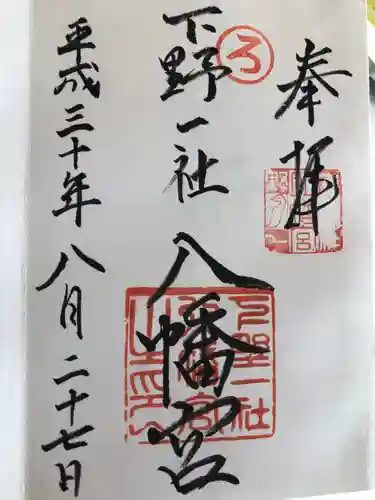 奉拝
下野一社
八幡宮
平成三十年八月二十七日
下野一社八幡宮之印